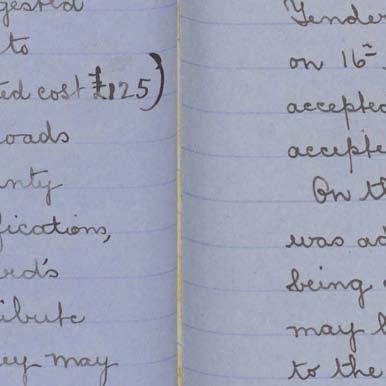 gested
to
ted cost £125)
oads
unty
fications,
ard's
ribute
ey may
Tender
on 16th
accepted
accepte
On th
was ad
being
may b
to the